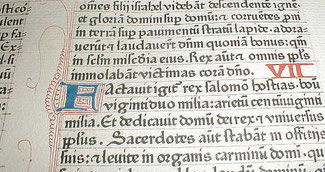 omes filij israhel videbāt descendentē ignē
et gloriā domini sup domū: et corruētes pni
in terrā sup pavimentū stratū lapide. adora-
verūt et laudaverūt dm̄: quoniā bonus. qm̄
in sclm̄ misc̄dia eius. Rex autē et omnis pp̄ls
immolabāt victimas corā dn̄o. VII
Mactavit igit̄ rex salomō hostias. boū
viginti duo milia: arietū centū viginti
milia. Et dedicavit domū dei rex et universus
pp̄ls. Sacerdotes autē stabāt in officijs
suis: et levite in organis carminū domī. q